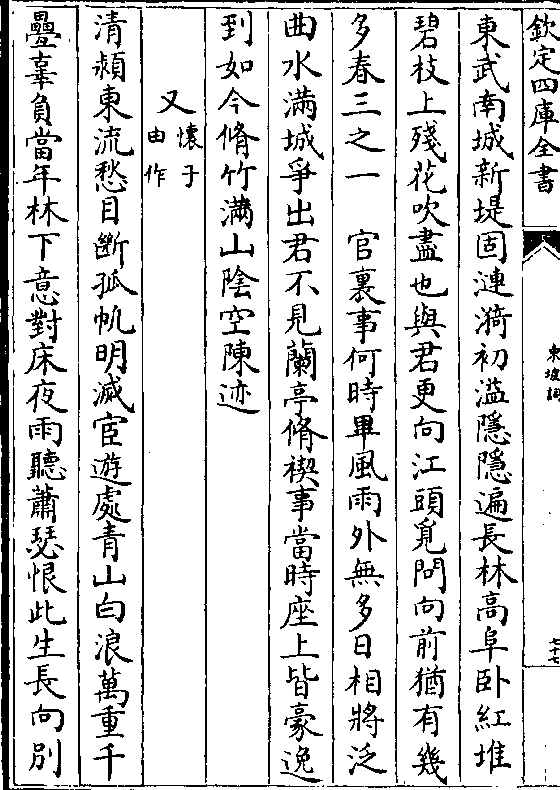 欽定四庫全書
東坡詞
七十七
東武南城新堤固漣漪初溢隱隱遍長林高阜卧紅堆
碧枝上殘花吹盡也與君更向江頭覓問向前猶有幾
多春三之一　官裏事何時畢風雨外無多日相將泛
曲水滿城爭出君不見蘭亭脩禊事當時座上皆豪逸
到如今脩竹滿山陰空陳迹
又懷子由作
清潁東流愁目斷孤帆明滅宦遊處青山白浪萬重千
疊辜負當年林下意對床夜雨聽蕭瑟恨此生長向別